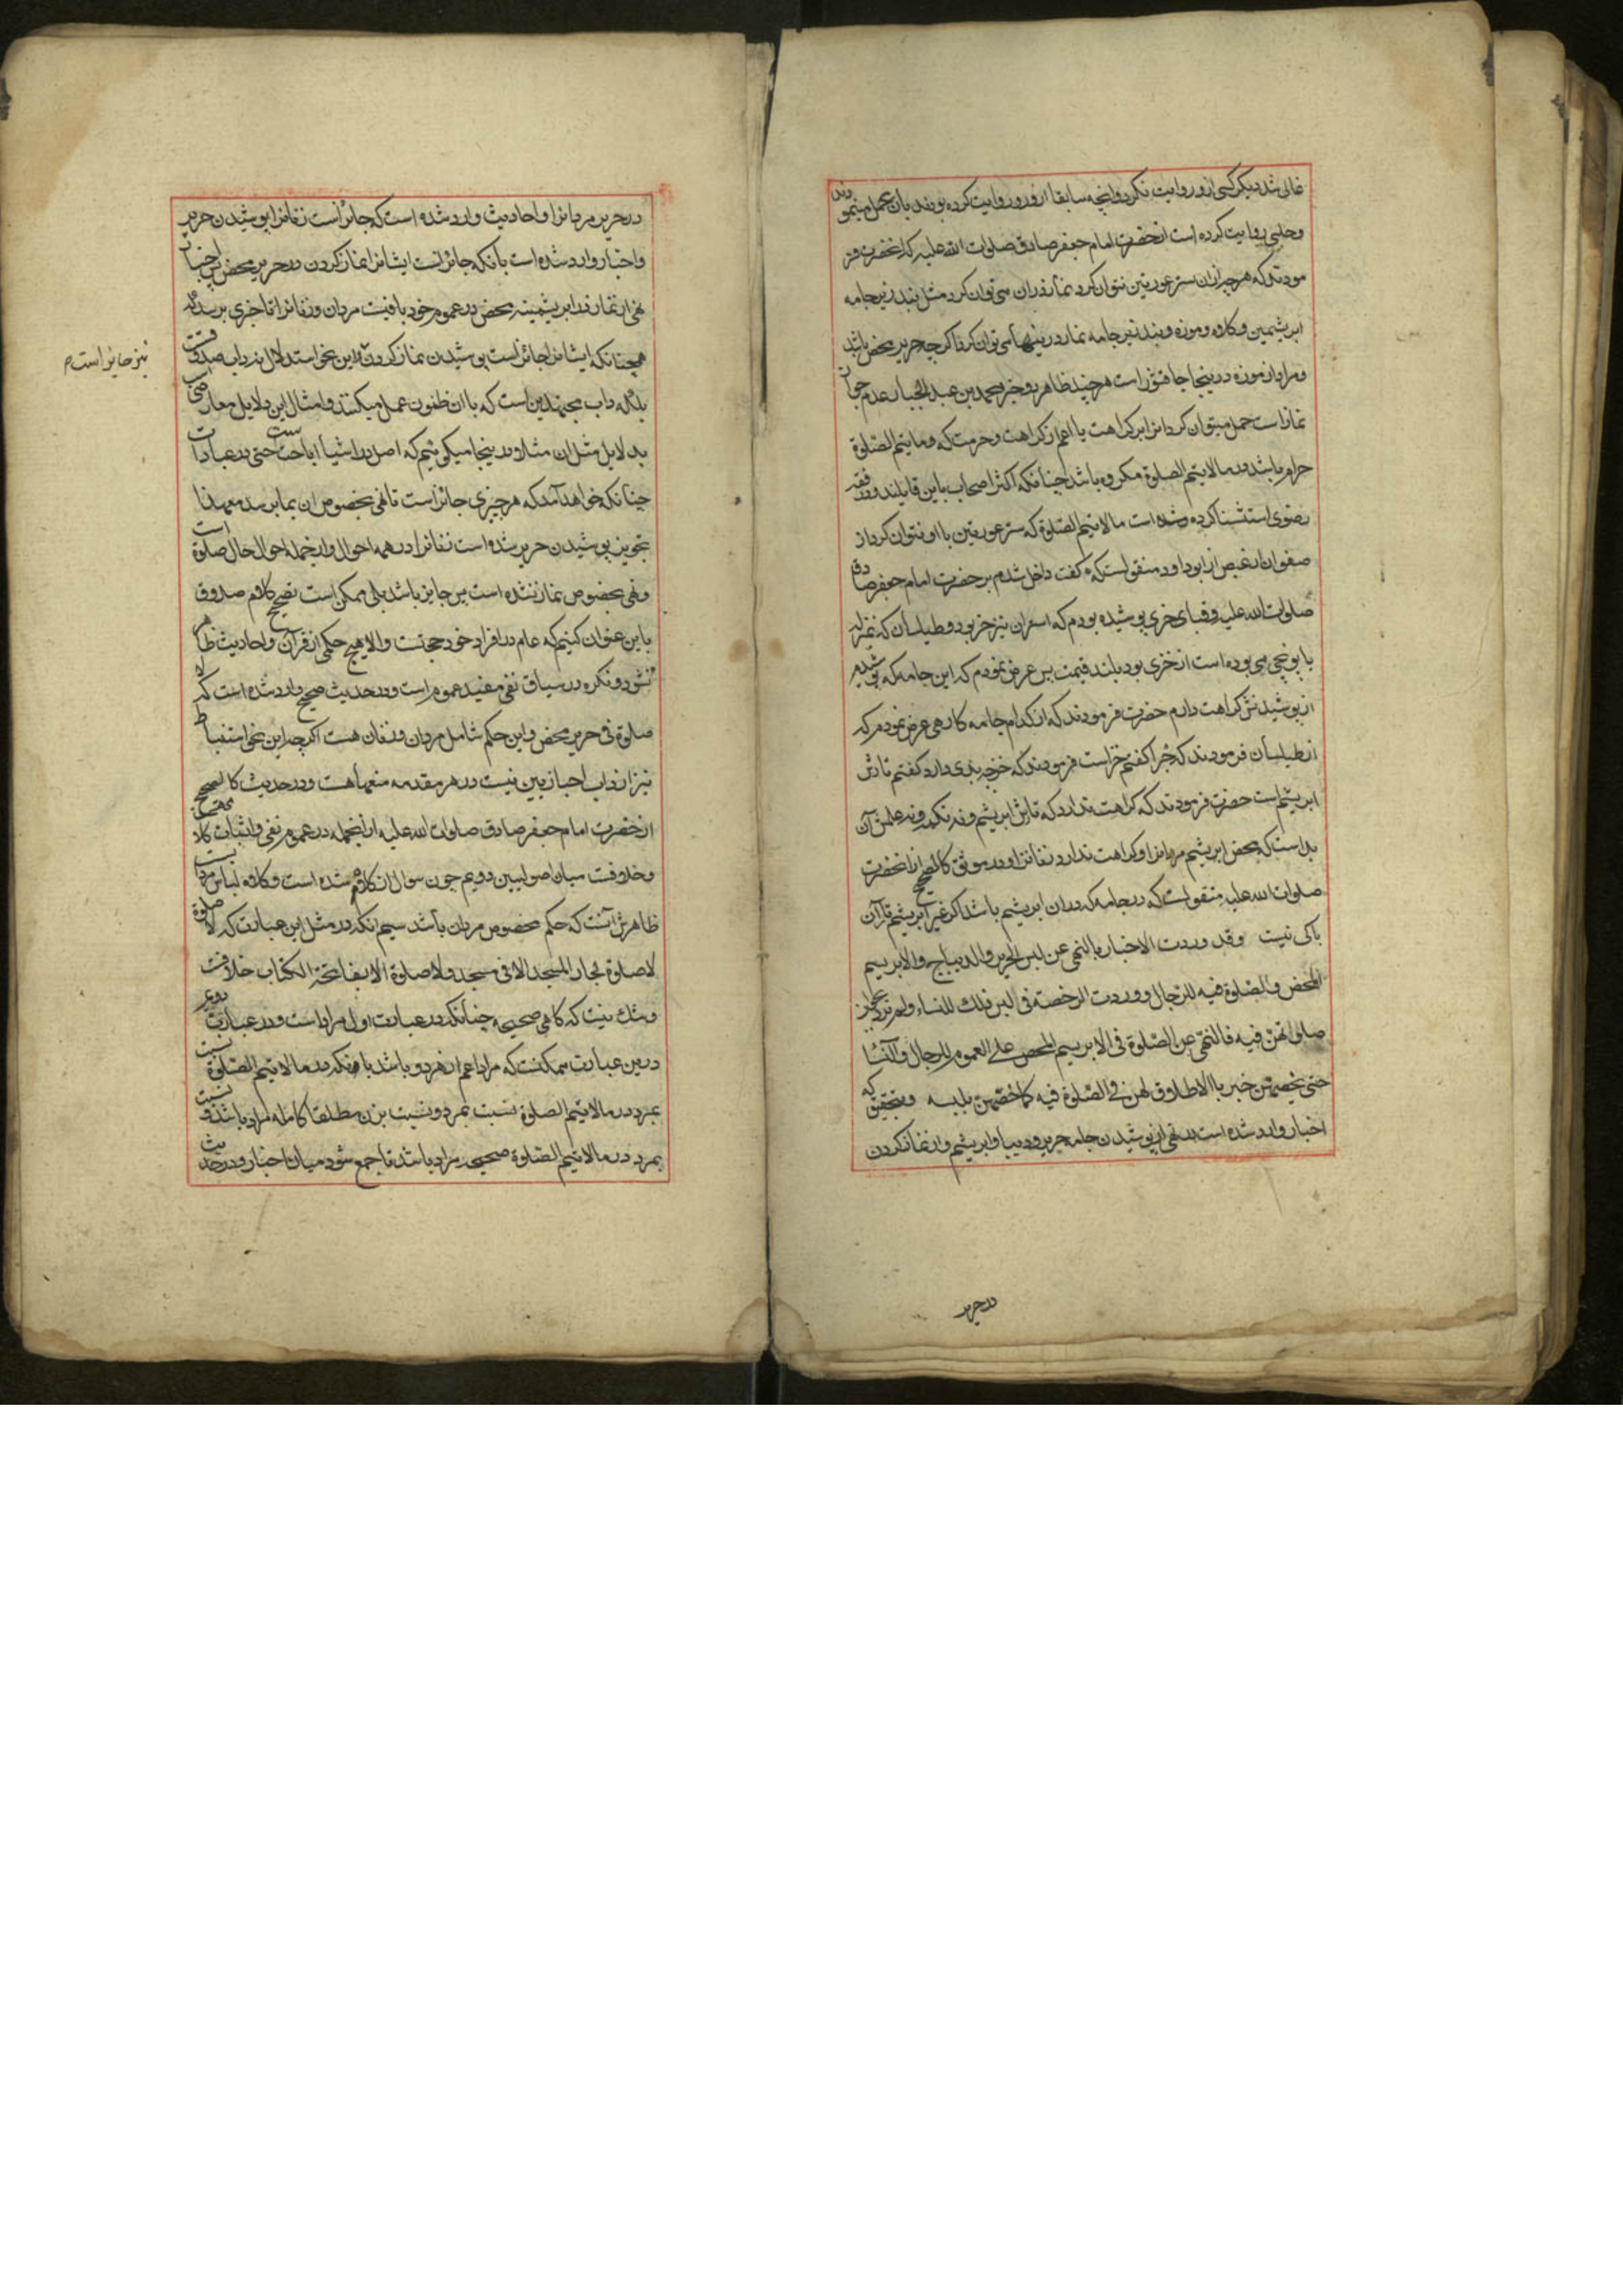 غالی شد دیگر کسی ازو روایت نکرد و آنچه سابقا ازو روایت کرده بودند بان عمل مینمودند
وحلبی روایت کرده است از حضرت امام جعفر صادق صلوات الله علیه که آنحضرت فر
مودند که هر چیز از ان ستر عورتین نتوان کرد نماز در ان می توان کرد مثل بند زیر جامه
ابریشمین و کلاه و موزه و بند زیر جامه نماز در ینها می توان کرد اگر چه حریر محض باشد
و مراد از موزه درینجا جاقشور است هر چند ظاهر دو خبر محمد بن عبد الجبار عدم جواز
نماز است حمل میتوان کرد انرا بر کراهت یا اعم از کراهت و حرمت که در ما یتم الصلوة
حرام باشد و در ما لا یتم الصلوة مکروه باشد چنانکه اکثر اصحاب باین قایلند و در فقه
رضوی استثنا کرده شده است ما لا یتم الصلوة که ستر عورتین با او نتوان کرد و از
صفوان از عیص از ابو داود منقولست که گفت داخل شدم بر حضرت امام جعفر صادق
صلوات الله علیه و قبای خزی پوشیده بودم که استران نیز خز بود و طیلسان که بمنزله
یاپونچی می بوده است از خزی بود بلند قیمت پس عرض نمودم که این جامه که پوشیدم
از پوشیدنش کراهت دارم حضرت فرمودند که از کدام جامه کارهی عرض نمودم که
از طیلسان فرمودند که چرا گفتم خز است فرمودند که خز چه بدی دارد گفتم تارش
ابریشم است حضرت فرمودند که کراهت ندارد که تارش ابریشم و نه تکمه و نه علمش آن
بد است که محض ابریشم مردانرا و کراهت ندارد زنانرا و در موثق کالصحیح از آنحضرت
صلوات الله علیه منقولست که در جامه که در ان ابریشم باشد اگر غیر ابریشم تار آن
باکی نیست وقد وردت الاخبار بالنهی عن لبس الحریر والدیباج والابریسم
المحض والصلوة فیه للرجال ووردت الرخصة فی لبس ذلک للنساء ولم یرد بجواز
صلواتهن فیه فالنهی عن الصلوة فی الابریسم المحض علی العموم للرجال والنساء
حتی یخصهن خبر بالاطلاق لهن فی الصلوة فیه کما خصهن بلبسه و بتحقیق که
اخبار وارد شده است بنهی از پوشیدن جامه حریر و دیبا و ابریشم و از نماز کردن
در حریر
در حریر مردانرا و احادیث وارد شده است که جائز است زنانرا پوشیدن حریر
و اخبار وارد شده است بانکه جائز نیست ایشانرا نماز کردن در حریر محض پس اخبار
نهی از نماز در ابریشمینه محض در عموم خود باقیست مردان و زنانرا تا خبری برسد که
همچنانکه ایشانرا جائز است پوشیدن نماز کردن این نحو استدلال نه داب صدوقست
نیز جایز است م
بلکه داب مجتهدین است که با ان ظنون عمل میکنند و امثال این دلایل معارض
بدلایل مثل ان مثلا در ینجا میگوئیم که اصل در اشیا اباحت است حتی در عبادات
چنانکه خواهد آمد که هر چیزی جائز است تا نهی بخصوص ان بما برسد معهذا
تجویز پوشیدن حریر شده است زنانرا در همه احوال و از جمله احوال حال صلوة است
و نهی بخصوص نماز نشده است پس جایز باشد بلی ممکن است تصحیح کلام صدوق
باین عنوان کنیم که عام در افراد خود حجت است والا هیچ حکمی از قرآن و احادیث ظاهر
نشود و نکره در سیاق نفی مفید عموم است و در حدیث صحیح وارد شده است که لا
صلوة فی حریر محض و این حکم شامل مردان و زنان هست اگر چه این نحو استنباط
نیز از داب اخبازیین نیست در هر مقدمه منعها هست و در حدیث کالصحیح
از حضرت امام جعفر صادق صلوات الله علیه از انجمله در عموم نفی و اثبات کلا
و خلافست میان اصولیین دویم چون سوال از کلاه شده است و کلاه لباس مردانست
ظاهرش آنست که حکم مخصوص مردان باشد سیم انکه در مثل این عبارت که لا صلوة
لا صلوة لجار المسجد الا فی مسجد ولا صلوة الا بفاتحة الکتاب خلافست
و شک نیست که کا هی صحیحه چنانکه در عبارت اول مراد است و در عبارت دویم
درین عبارت ممکنست که مراد اعم از هر دو باشد یا انکه در ما لا یتم الصلوة نسبت
بمرد در ما لا یتم الصلوة نسبت بمرد و نسبت بزن مطلقا کامله مراد باشد و نسبت
بمرد در ما لا یتم الصلوة صحیحه مراد باشد تا جمع شود میان اخبار و در حدیث